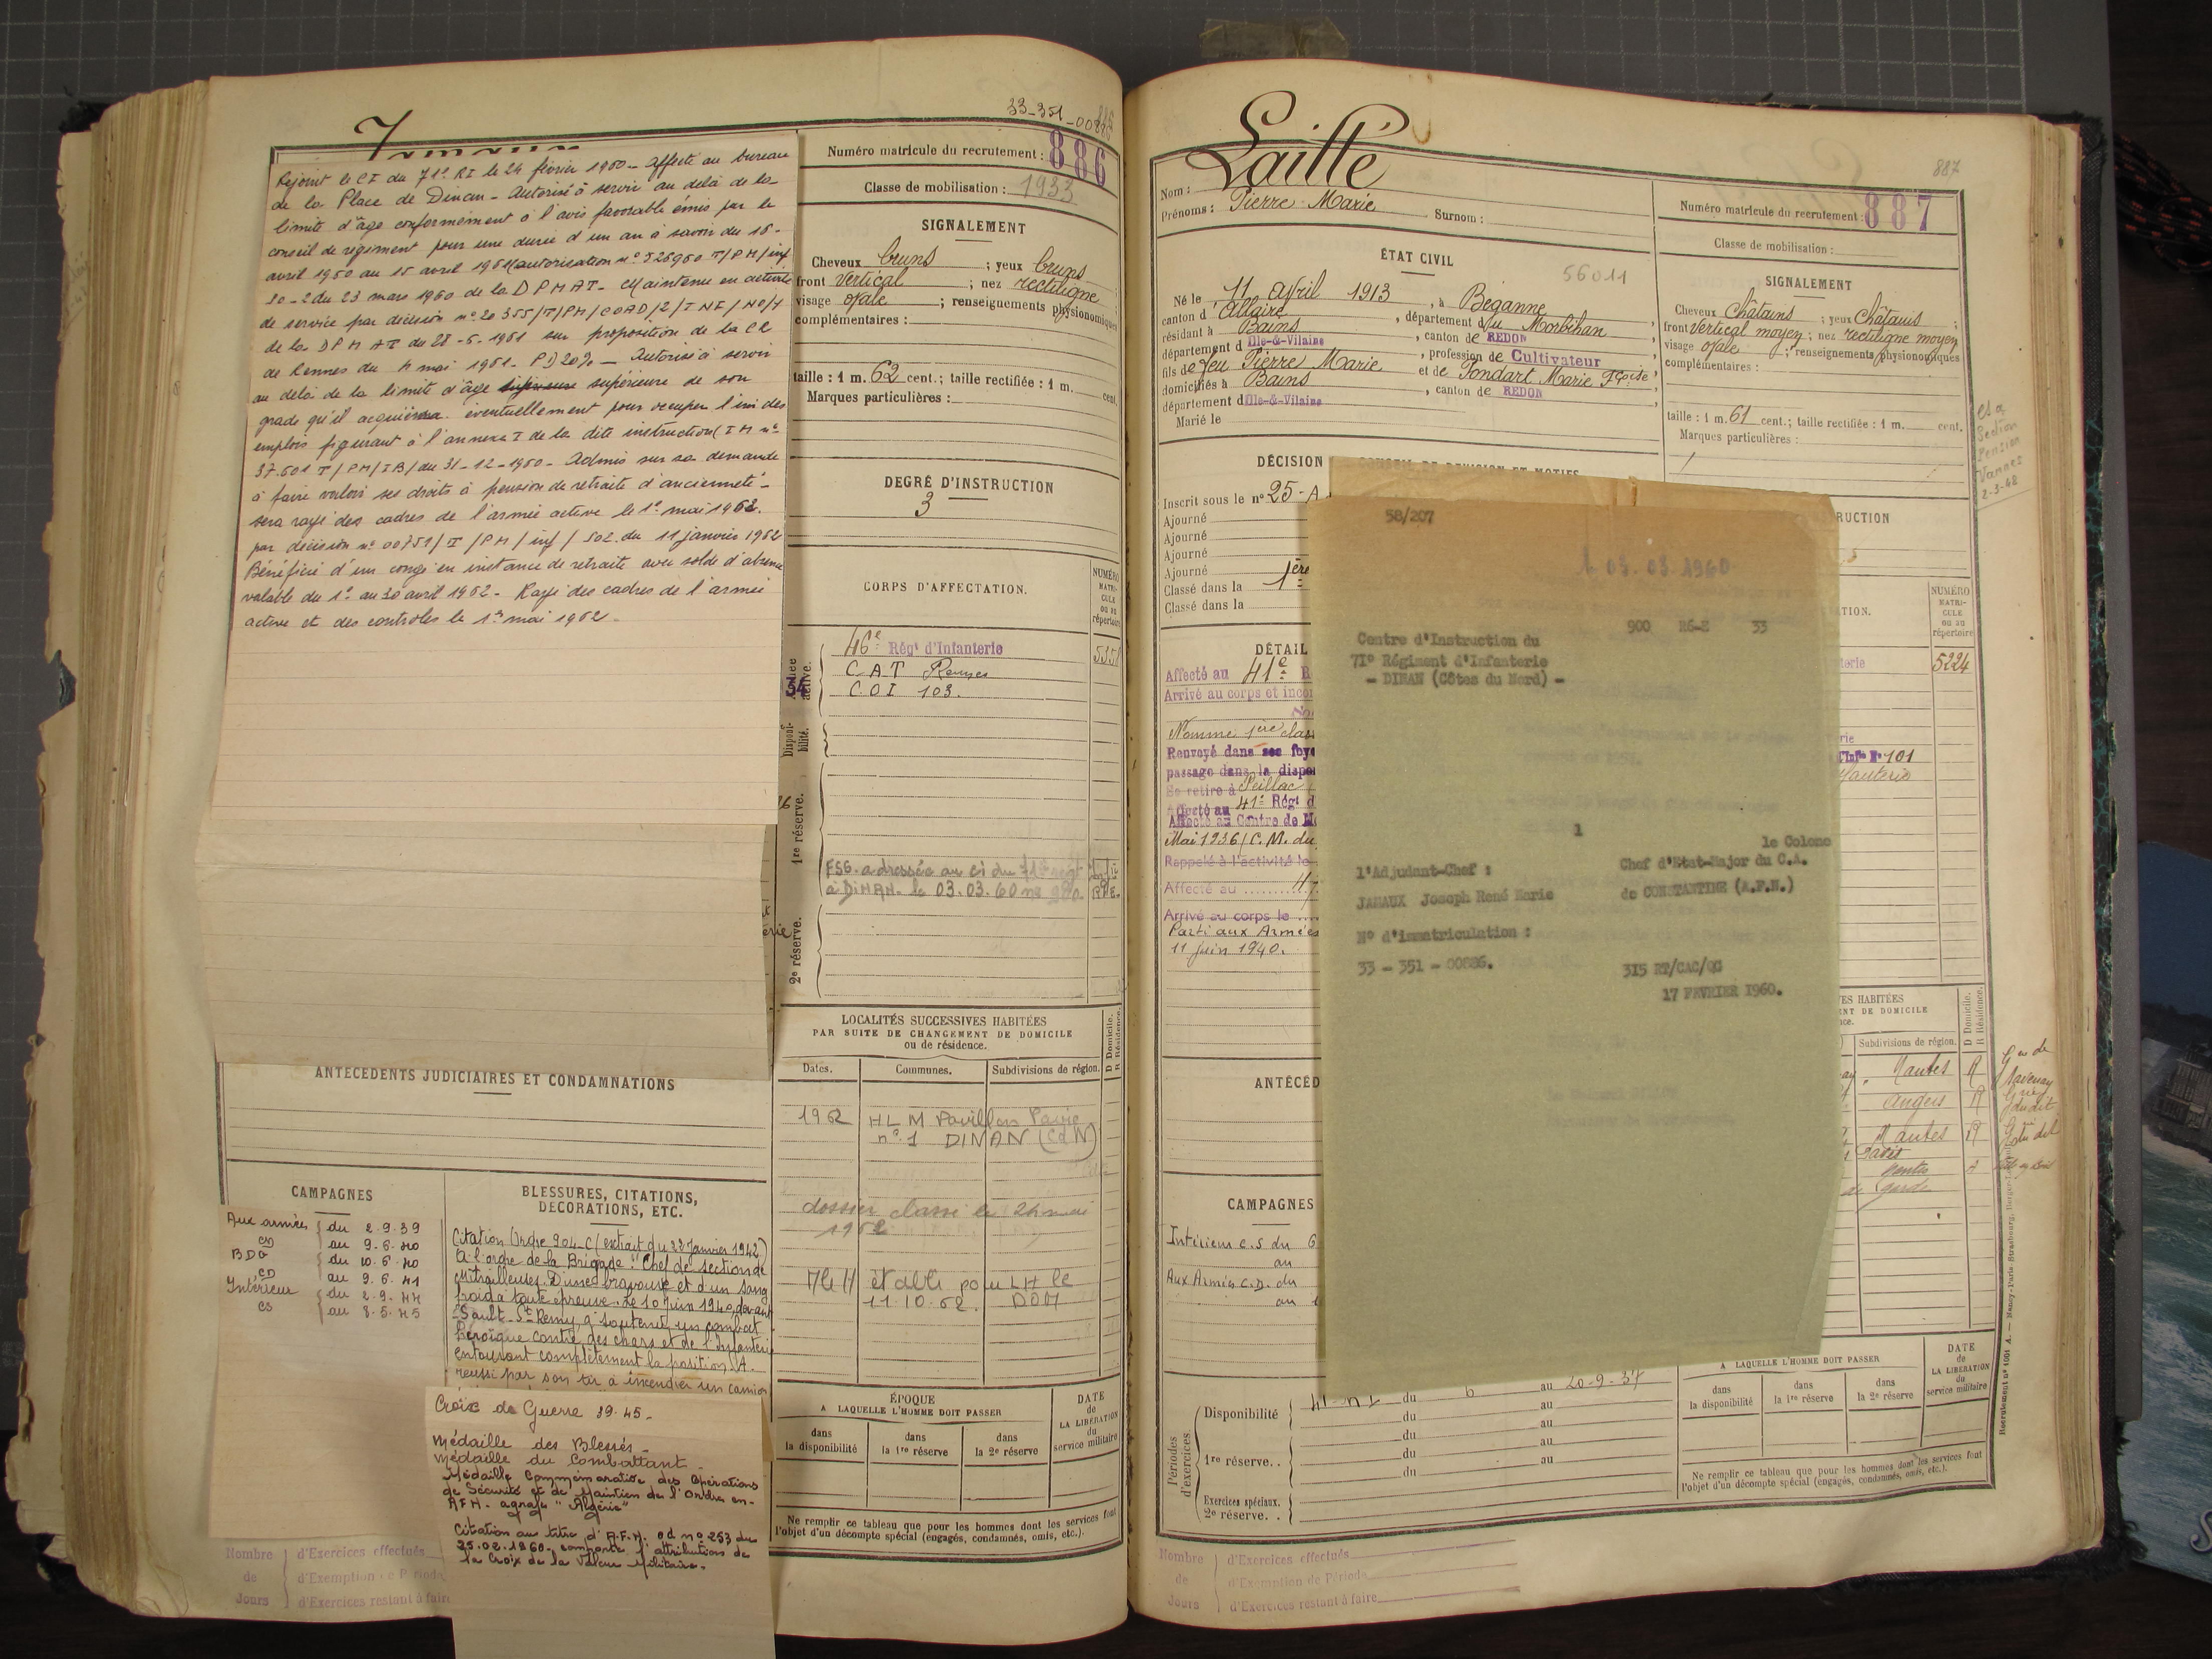 33-351-00886
Rejoint le CI du 71e RI le 24 février 1960 - Affecté au bureau
de la Place de Dinan - Autorisé à servir au delà de la
limite d'âge conformément à l'avis favorable émis par le
conseil de régiment pour une durée d'un an à savoir du 16
avril 1960 au 15 avril 1961 (autorisation n° 526960 T/PM/inf
10-2 du 23 mars 1960 de la DPMAT - Maintenu en activité
de service par décision n° 20355/T/PM/
de la DPMAT du 28-6-1961 sur proposition de la
de Rennes du 4 mai 1961. PD 20% - Autorisé à servir
au delà de la limite d'âge supérieure de son
grade qu'il acquièrera éventuellement pour occuper l'un des
emplois figurant à l'annexe I de la dite instruction (IM n°
37.601 T/PM/IB/ du 31-12-1950 - Admis sur sa demande
à faire valoir ses droits à pension de retraite d'ancienneté -
sera rayé des cadres de l'armée active le 1er mai 1962.
par décision n° 00751/T/PM/inf/502 du 11 janvier 1962
Bénéficie d'un congé en instance de retraite avec solde d'absence
valable du 1er au 30 avril 1962 - Rayé des cadres de l'armée
active et des contrôles le 1er mai 1962.
Numéro matricule du recrutement : 886
Classe de mobilisation : 1933
SIGNALEMENT
Cheveux bruns ; yeux bruns
front vertical ; nez rectiligne
visage ovale ; renseignements physionomiques
complémentaires :
taille : 1 m. 62 cent. ; taille rectifiée : 1 m. cent.
Marques particulières :
DEGRÉ D'INSTRUCTION
3
CORPS D'AFFECTATION.
NUMÉRO
MATRI-
CULE
OU AU
répertoire
46e Régt d'Infanterie
C.A.T Rennes
C.O.I 103.
Armée
active.
Disponi-
bilité.
1re réserve.
FSG. adressée au ci du 71e
à DINAN. le 03.03.60 n° 900.
2e réserve.
LOCALITÉS SUCCESSIVES HABITÉES
PAR SUITE DE CHANGEMENT DE DOMICILE
ou de résidence.
D Domicile.
R Résidence.
Dates. Communes. Subdivisions de région.
1962 HLM Pavillon Pavie
n° 1 DINAN (CdN)
dossier classé le 24 mai
1962
établi pour LH le
11.10.62.
ÉPOQUE
A LAQUELLE L'HOMME DOIT PASSER
DATE
de
LA LIBÉRATION
du
service militaire
dans
la disponibilité
dans
la 1re réserve
dans
la 2e réserve
Ne remplir ce tableau que pour les hommes dont les services font
l'objet d'un décompte spécial (engagés, condamnés, omis, etc.).
ANTÉCÉDENTS JUDICIAIRES ET CONDAMNATIONS
CAMPAGNES
Aux armées du 2.9.39
CD au 9.6.40
BDG du 10.6.40
CD au 9.6.41
Intérieur du 2.9.44
CS au 8.5.45
BLESSURES, CITATIONS,
DÉCORATIONS, ETC.
Citation Ordre 904-C (extrait du 22 Janvier 1942)
A l'ordre de la Brigade : "Chef de section de
Mitrailleuses. D'une bravoure et d'un sang
froid à toute épreuve. Le 10 Juin 1940, devant
Sault-St-Remy, a soutenu un combat
héroïque contre des chars et de l'Infanterie
entourant complètement la position. A
réussi par son tir à incendier un camion
Croix de Guerre 39.45.
Médaille des Blessés -
Médaille du Combattant -
Médaille Commémorative des Opérations
de Sécurité et de Maintien de l'Ordre en
AFN - agrafe "Algérie"
Citation au titre d'A.F.N. od n° 253 du
25.02.1960. comporte l'attribution de
la Croix de la Valeur Militaire.
Nombre d'Exercices effectués
de d'Exemption de Période
Jours d'Exercices restant à faire
887
Laillé
Nom :
Prénoms : Pierre Marie Surnom :
Numéro matricule du recrutement : 887
Classe de mobilisation :
ÉTAT CIVIL
56011
Né le 11 avril 1913, à Beganne
canton d'Allaire, département du Morbihan,
résidant à Bains, canton de REDON
département d'Ille-&-Vilaine, profession de Cultivateur
fils de feu Pierre Marie et de Pondart Marie Fçoise
domiciliés à Bains, canton de REDON
département d'Ille-&-Vilaine
Marié le
SIGNALEMENT
Cheveux Châtains ; yeux Châtains
front vertical moyen ; nez rectiligne moyen
visage ovale ; renseignements physionomiques
complémentaires :
taille : 1 m. 61 cent. ; taille rectifiée : 1 m. cent.
Marques particulières :
Section
Pension
Vannes
2-3-48
DÉCISION
Inscrit sous le n° 25-A
Ajourné
Ajourné
Ajourné
Ajourné
Classé dans la 1ère
Classé dans la
RUCTION
ATION.
NUMÉRO
MATRI-
CULE
OU AU
répertoire
5224
DÉTAIL
Affecté au 41e R
Arrivé au corps et incor
Nommé 1ère clas
Renvoyé dans ses foye
passage dans la dispo
Se retire à Peillac
Affecté au 41e Régt d
Affecté au Centre de M
Mai 1936 (C.M. du
Rappelé à l'activité le
Affecté au
Arrivé au corps le
Parti aux Armées
11 juin 1940.
58/207
le 03.03.1960
900 RG-2 33
Centre d'Instruction du
71° Régiment d'Infanterie
- DINAN (Côtes du Nord) -
1
le Colone
l'Adjudant-Chef :
Chef d'Etat-Major du C.A.
JAMAUX Joseph René Marie
de CONSTANTINE (A.F.N.)
N° d'immatriculation :
33 - 351 - 00886.
315 RT/CAC/QG
17 FEVRIER 1960.
ANTÉCÉD
ES HABITÉES
NT DE DOMICILE
D Domicile.
R Résidence.
Subdivisions de région.
Nantes R
Angers R
Nantes R
CAMPAGNES
Intérieur C.S du 6
au
Aux Armées C.D. du
au
Périodes
d'exercices
Disponibilité 41 RI du 6 au 20-9-37
du au
du au
1re réserve.. du au
du au
Exercices spéciaux.
2e réserve..
A LAQUELLE L'HOMME DOIT PASSER
DATE
de
LA LIBÉRATION
du
service militaire
dans
la disponibilité
dans
la 1re réserve
dans
la 2e réserve
Ne remplir ce tableau que pour les hommes dont les services font
l'objet d'un décompte spécial (engagés, condamnés, omis, etc.).
Nombre d'Exercices effectués
de d'Exemption de Période
Jours d'Exercices restant à faire